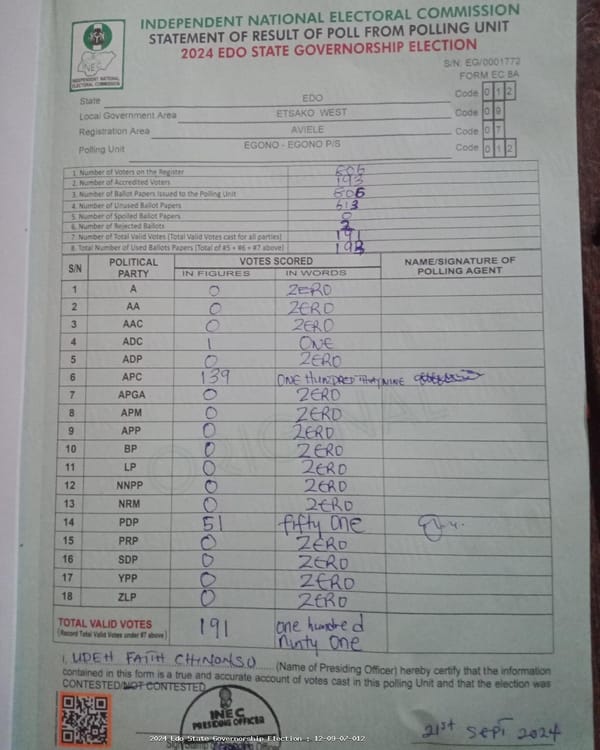 INDEPENDENT NATIONAL ELECTORAL COMMISSION
STATEMENT OF RESULT OF POLL FROM POLLING UNIT
2024 EDO STATE GOVERNORSHIP ELECTION
INEC
INDEPENDENT NATIONAL ELECTORAL COMMISSION
S/N: EG/0001772
FORM EC 8A
State EDO Code 0 1 2
Local Government Area ETSAKO WEST Code 0 9
Registration Area AVIELE Code 0 7
Polling Unit EGONO - EGONO P/S Code 0 1 2
1. Number of Voters on the Register 806
2. Number of Accredited Voters 193
3. Number of Ballot Papers Issued to the Polling Unit 806
4. Number of Unused Ballot Papers 613
5. Number of Spoiled Ballot Papers 0
6. Number of Rejected Ballots 2
7. Number of Total Valid Votes (Total Valid Votes cast for all parties) 191
8. Total Number of Used Ballots Papers (Total of #5 + #6 + #7 above) 193
S/N POLITICAL PARTY VOTES SCORED NAME/SIGNATURE OF POLLING AGENT
IN FIGURES IN WORDS
1 A 0 ZERO
2 AA 0 ZERO
3 AAC 0 ZERO
4 ADC 1 ONE
5 ADP 0 ZERO
6 APC 139 ONE HUNDRED THAY NINE
7 APGA 0 ZERO
8 APM 0 ZERO
9 APP 0 ZERO
10 BP 0 ZERO
11 LP 0 ZERO
12 NNPP 0 ZERO
13 NRM 0 ZERO
14 PDP 51 fifty ONE
15 PRP 0 ZERO
16 SDP 0 ZERO
17 YPP 0 ZERO
18 ZLP 0 ZERO
TOTAL VALID VOTES 191 one hundred
(Record Total Valid Votes under #7 above) Ninty One
I, UDEH FAITH CHINONSO (Name of Presiding Officer) hereby certify that the information
contained in this form is a true and accurate account of votes cast in this polling Unit and that the election was
CONTESTED/NOT CONTESTED
INEC
PRESIDING OFFICER
2024 Edo State Governorship Election : 12-09-07-012
21st SEPT 2024